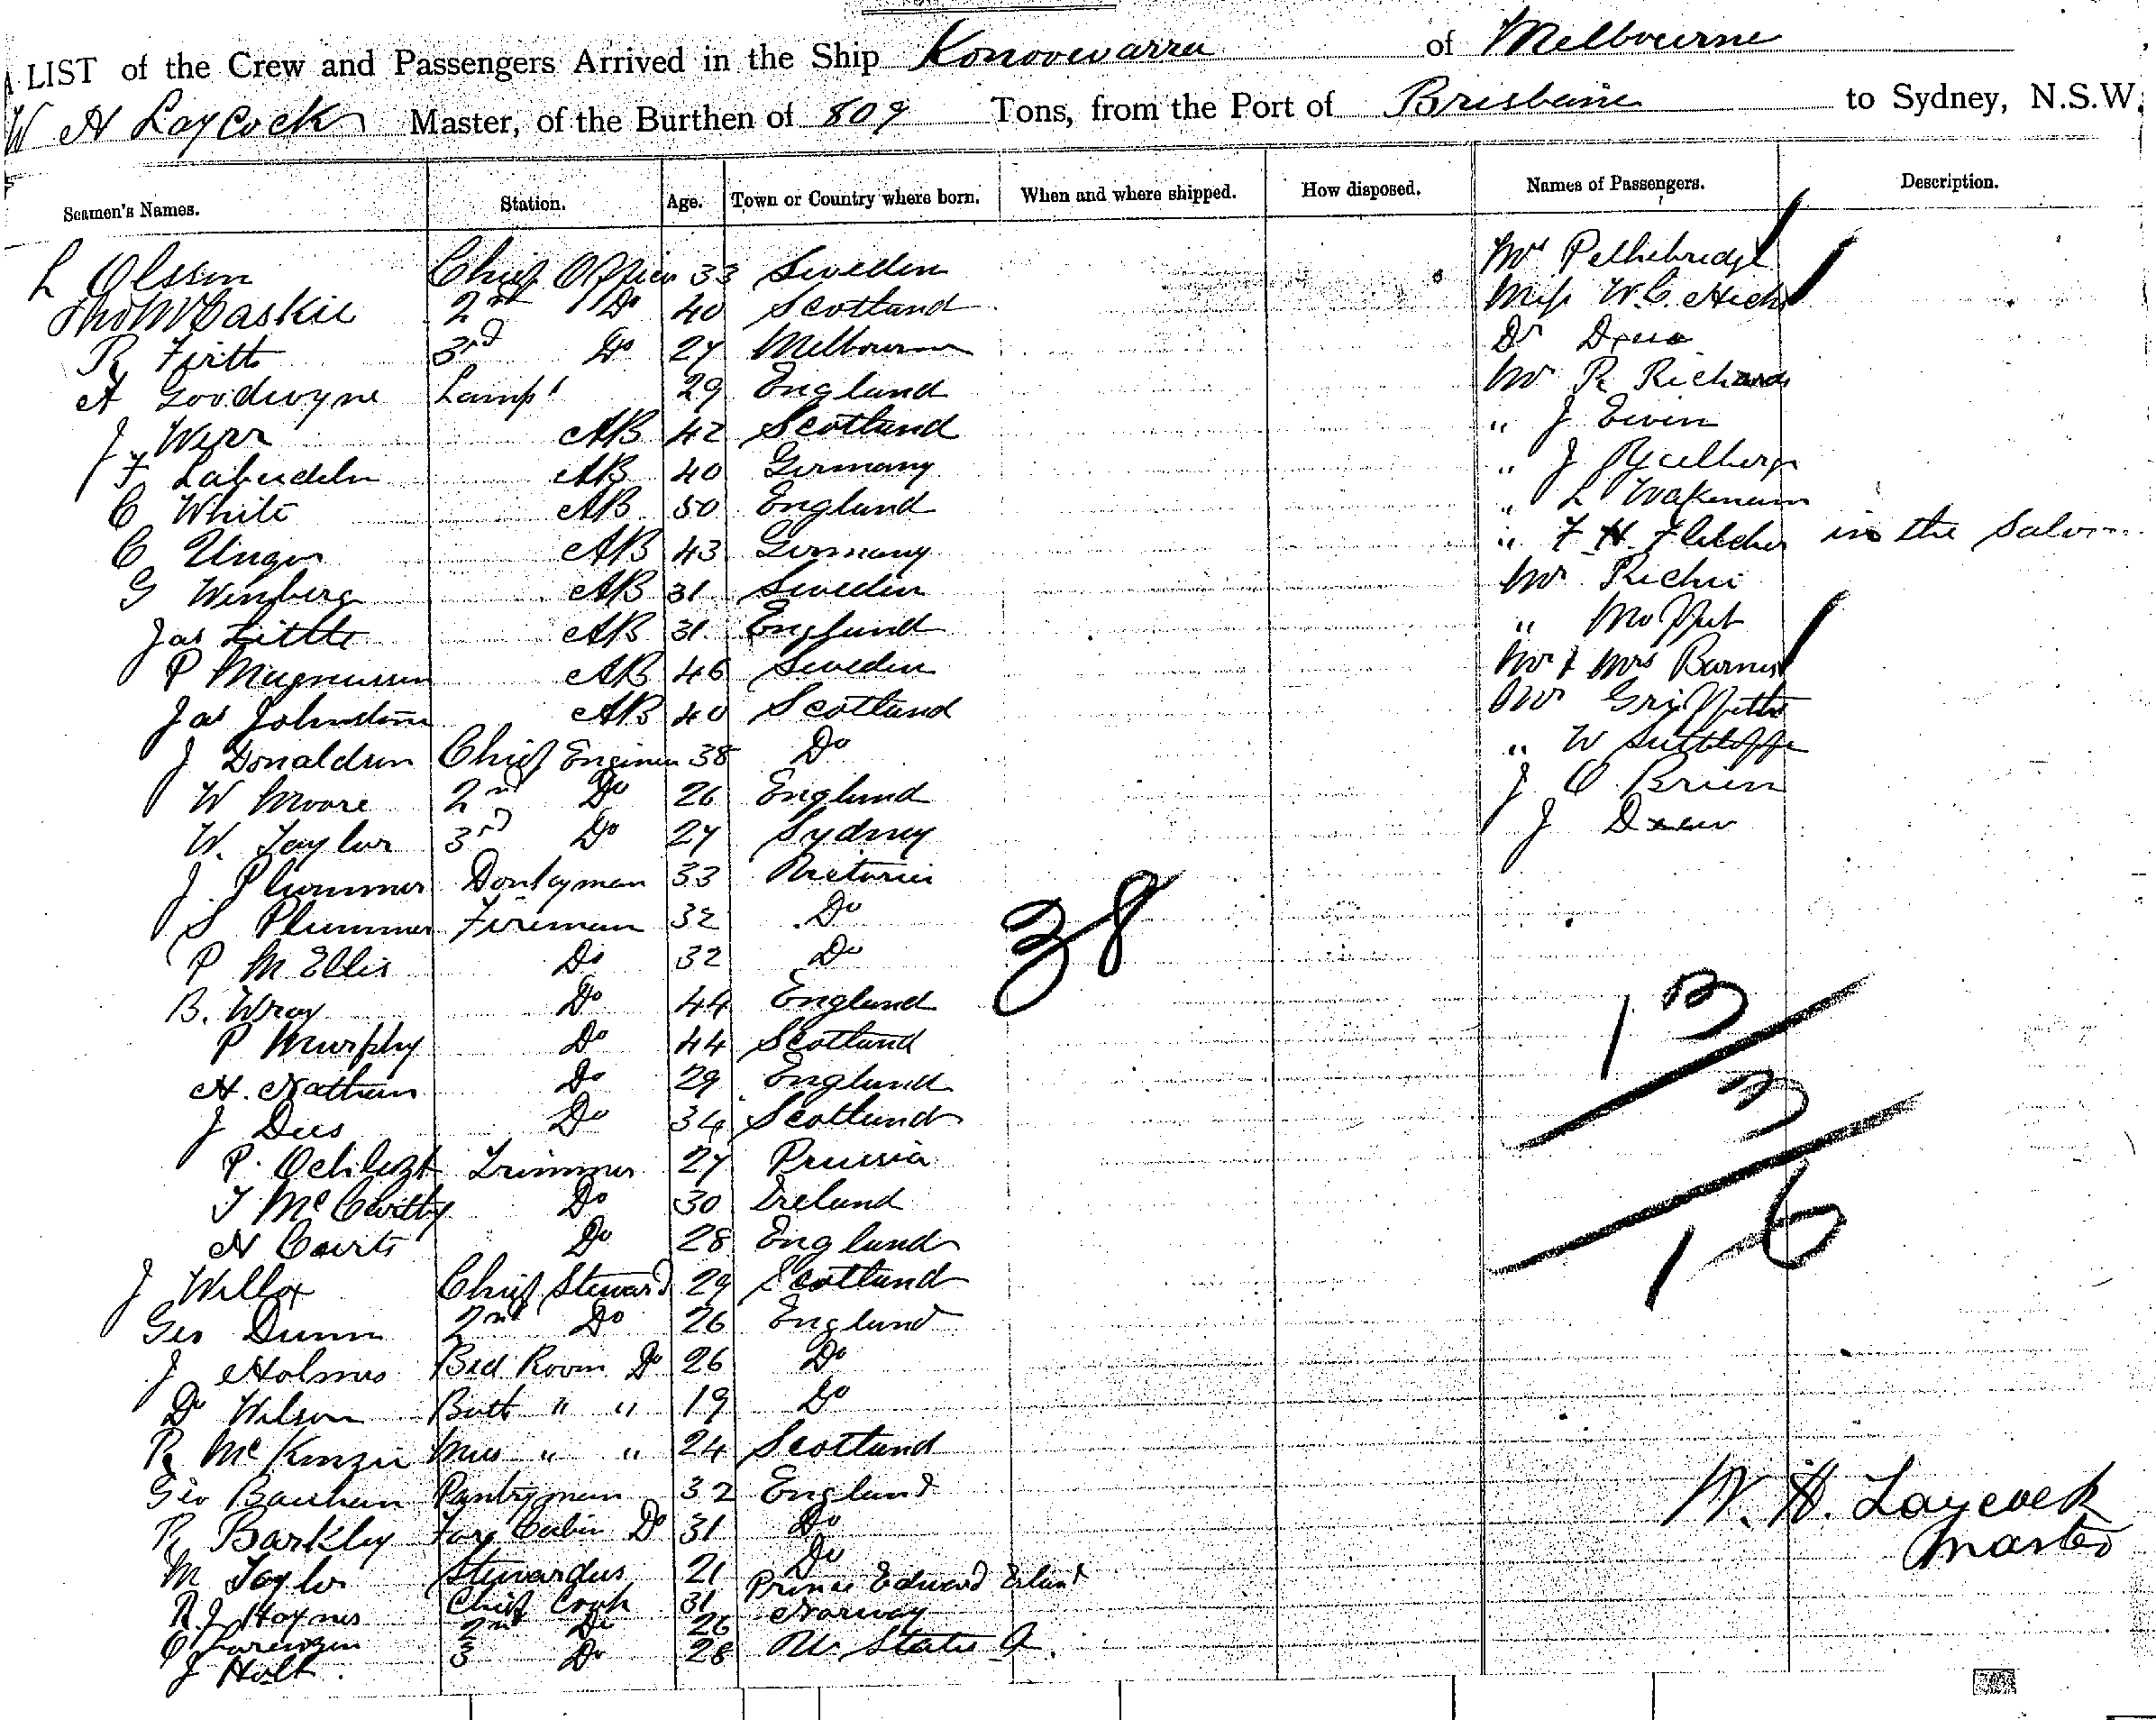 A LIST of the Crew and Passengers Arrived in the Ship Konoowarra of Melbourne
W H Laycock Master, of the Burthen of 809 Tons, from the Port of Brisbane to Sydney, N.S.W.
Seamen's Names. Station. Age. Town or Country where born. When and where shipped. How disposed. Names of Passengers. Description.
L Olsson Chief Officer 33 Sweden Mrs Pethebridge
Thos McCaskie 2nd Do 40 Scotland Miss W.C. Hicks
R Firth 3rd Do 27 Melbourne Dr Drew
A Goodwyne Lamps 29 England Mr R Richards
J Weir AB 42 Scotland " J Ewin
F AB 40 Germany " J
C White AB 50 England " L Wakeman
C Unger AB 43 Germany " F H Fletcher in the Saloon
G Winberg AB 31 Sweden Mr Richie
Jas Little AB 31 England " Moffat
P Magnussen AB 46 Sweden Mr & Mrs Barnes
Jas Johnston AB 40 Scotland Mr Griffiths
J Donaldson Chief Engineer 38 Do " W
W Moore 2nd Do 26 England J O Brien
W. Taylor 3rd Do 27 Sydney J Drew
J. Plummer Donkeyman 33 Victoria
S Plummer Fireman 32 Do
P M Ellis Do 32 Do
38
B. Wray Do 44 England
P Murphy Do 44 Scotland
13
H. Nathan Do 29 England
J Dees Do 34 Scotland
3
P. Trimmer 27 Prussia
T McCarthy Do 30 Ireland
H Courts Do 28 England
16
J Willox Chief Steward 29 Scotland
Geo Dunn 2nd Do 26 England
J Holmes Bed Room Do 26 Do
Do Wilson Bath " " 19 Do
R McKenzie Mess " " 24 Scotland
Geo Pantryman 32 England
W. H. Laycock
R Barkley Fore Cabin Do 31 Do
Master
M Taylor Stewardess 21 Do
R. J. Haynes Chief Cook 31 Prince Edward Island
O Lorenzen 2nd Do 26 Norway
J Holt. 3 Do 28 U States A.